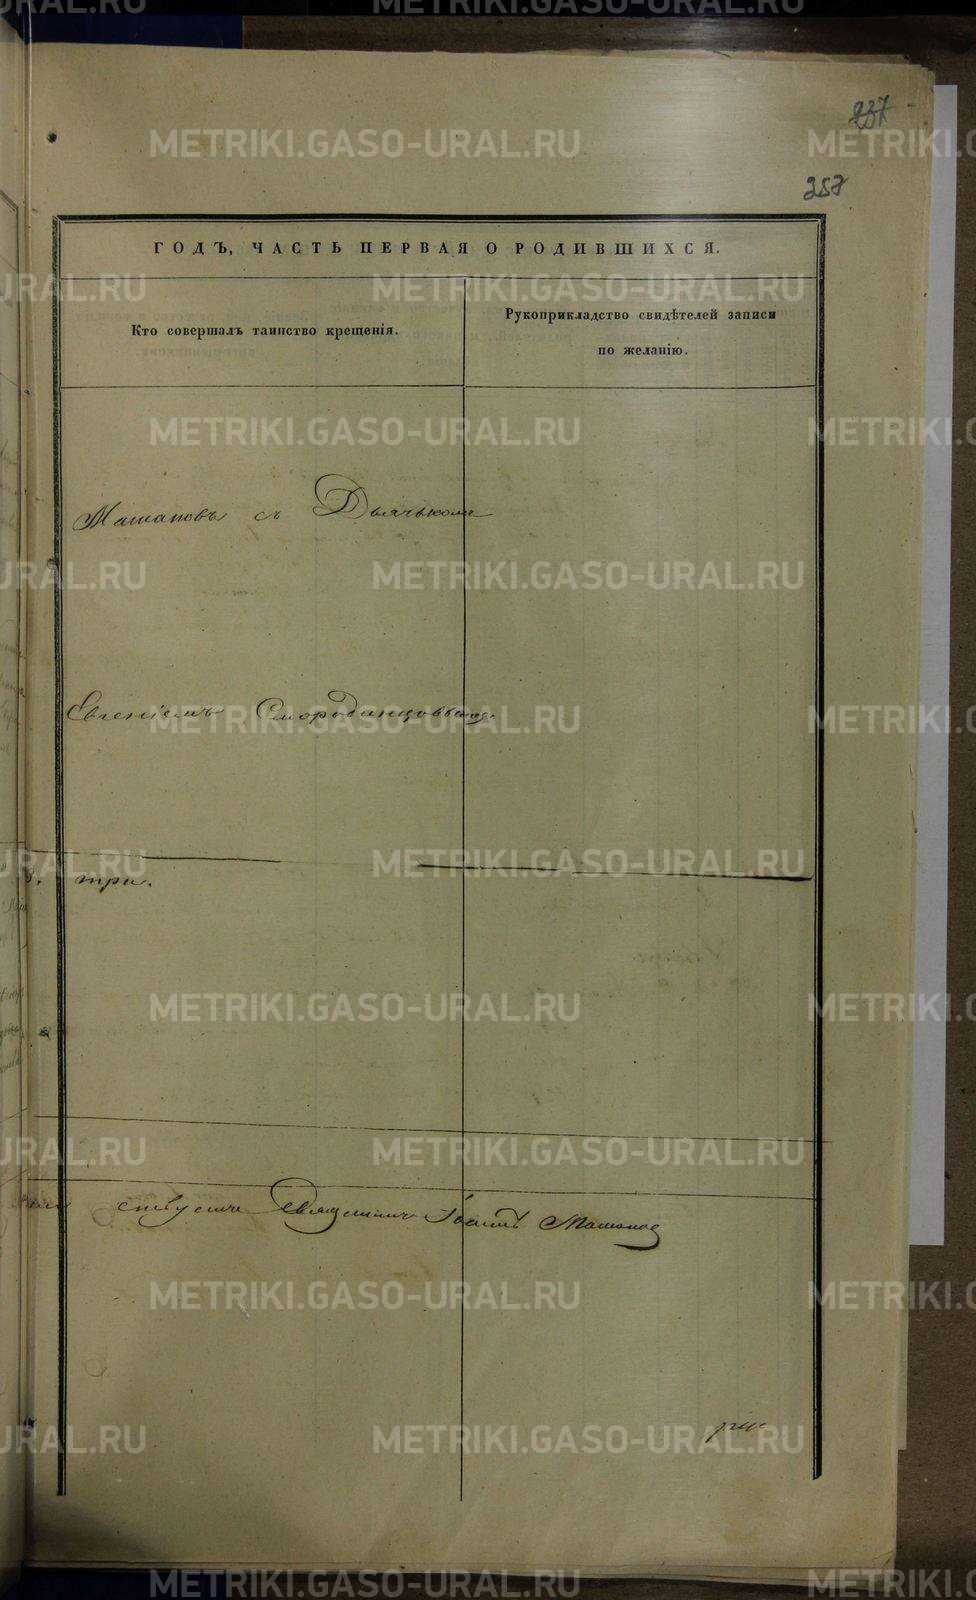 METRIKI.GASO-URAL.RU
237
257
ГОДЪ, ЧАСТЬ ПЕРВАЯ О РОДИВШИХСЯ.
Кто совершалъ таинство крещенія.
Рукоприкладство свидѣтелей записи
по желанію.
Машановъ съ Дьячькомъ
Евгеніемъ Смородинцовымъ.
три.
Священникъ Іоаннъ Машанов